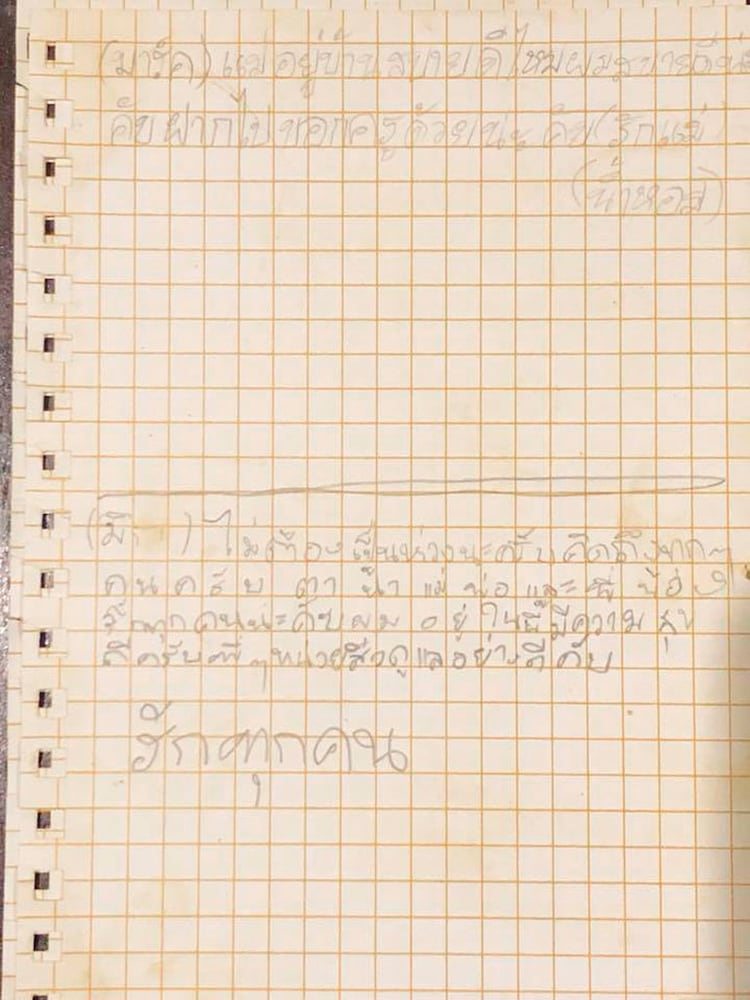 (มาร์ค) แม่อยู่บ้านสบายดีไหมผมสบายดี
คับฝากไปบอกครูด้วยนะ คับ (รักแม่)
(น้ำหอม)
ไม่ต้องเป็นห่วงนะครับคิดถึงทุกๆ
คนครับ ตา น้า แม่ พ่อ และ พี่ น้อง
รักทุกคนนะคับผม อยู่ ในนี้มีความ สุข
ดีครับพี่ๆหน่วยซีลดูแลอย่างดีคับ
รักทุกคน